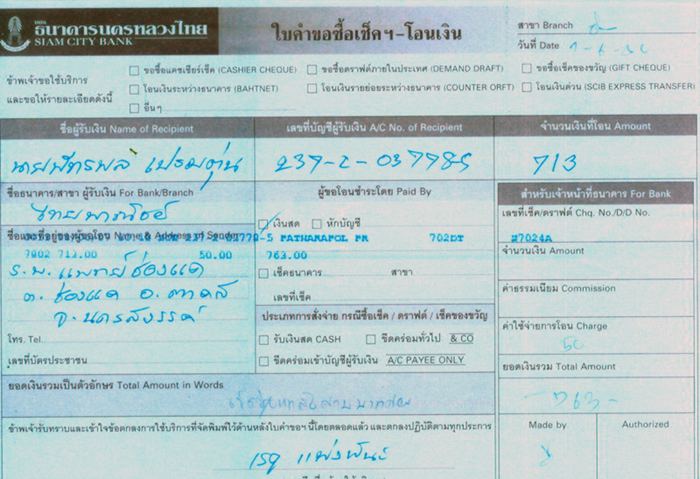 ธนาคารนครหลวงไทย
SIAM CITY BANK
ใบคำขอซื้อเช็คฯ-โอนเงิน
สาขา Branch
วันที่ Date
ข้าพเจ้าขอใช้บริการ
และขอให้รายละเอียดดังนี้
ขอซื้อแคชเชียร์เช็ค (CASHIER CHEQUE)
ขอซื้อดราฟต์ภายในประเทศ (DEMAND DRAFT)
ขอซื้อเช็คของขวัญ (GIFT CHEQUE)
โอนเงินระหว่างธนาคาร (BAHTNET)
โอนเงินรายย่อยระหว่างธนาคาร (COUNTER ORFT)
โอนเงินด่วน (SCIB EXPRESS TRANSFER)
อื่นๆ
ชื่อผู้รับเงิน Name of Recipient
เลขที่บัญชีผู้รับเงิน A/C No. of Recipient
จำนวนเงินที่โอน Amount
237-2-037785
713
ชื่อธนาคาร/สาขา ผู้รับเงิน For Bank/Branch
ผู้ขอโอนชำระโดย Paid By
สำหรับเจ้าหน้าที่ธนาคาร For Bank
ไทยพาณิชย์
เงินสด หักบัญชี
เลขที่เช็ค/ดราฟต์ Chq. No./D/D No.
ชื่อและที่อยู่ของผู้ขอโอน Name & Address of Sender
PATHARAPOL PR 702DT
#7024A
7902 713.00 50.00 763.00
จำนวนเงิน Amount
ร.พ. แพทย์ช่องแค
เช็คธนาคาร สาขา
ต. ช่องแค อ. ตาคลี
เลขที่เช็ค
ค่าธรรมเนียม Commission
จ. นครสวรรค์
ประเภทการสั่งจ่าย กรณีซื้อเช็ค / ดราฟต์ / เช็คของขวัญ
ค่าใช้จ่ายการโอน Charge
50
โทร. Tel.
รับเงินสด CASH ขีดคร่อมทั่วไป & CO
เลขที่บัตรประชาชน
ขีดคร่อมเข้าบัญชีผู้รับเงิน A/C PAYEE ONLY
ยอดเงินรวม Total Amount
763-
ยอดเงินรวมเป็นตัวอักษร Total Amount in Words
ข้าพเจ้ารับทราบและเข้าใจข้อตกลงการใช้บริการที่จัดพิมพ์ไว้ด้านหลังใบคำขอฯ นี้โดยตลอดแล้ว และตกลงปฏิบัติตามทุกประการ
Made by Authorized